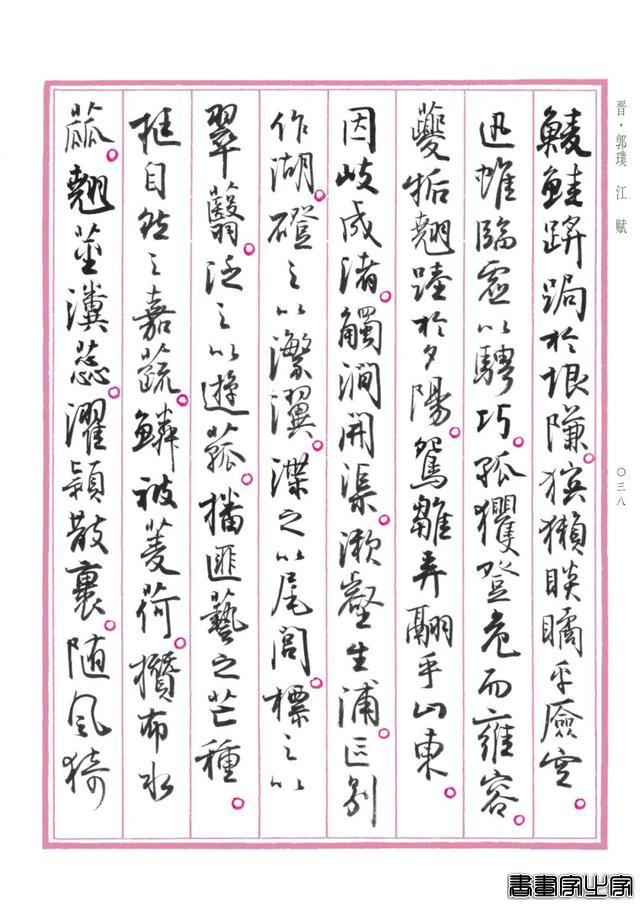 晋·郭璞 江賦
〇三八
鯪鯥踦跼於垠隒。獱獺睒瞲乎厱空。
迅蜼臨虛以騁巧。孤玃登危而雍容。
夔㸸翹踛於夕陽。鴛雛弄翮乎山東。
因岐成渚。觸澗開渠。漱壑生浦。区別
作湖。磴之以瀿瀷。渫之以尾閭。標之以
翠蘙。泛之以遊菰。播匪藝之芒種。
挺自然之嘉蔬。鱗被菱荷。攢布水
蓏。翹莖瀵蕊。濯穎散裹。随風猗
書畫家必字